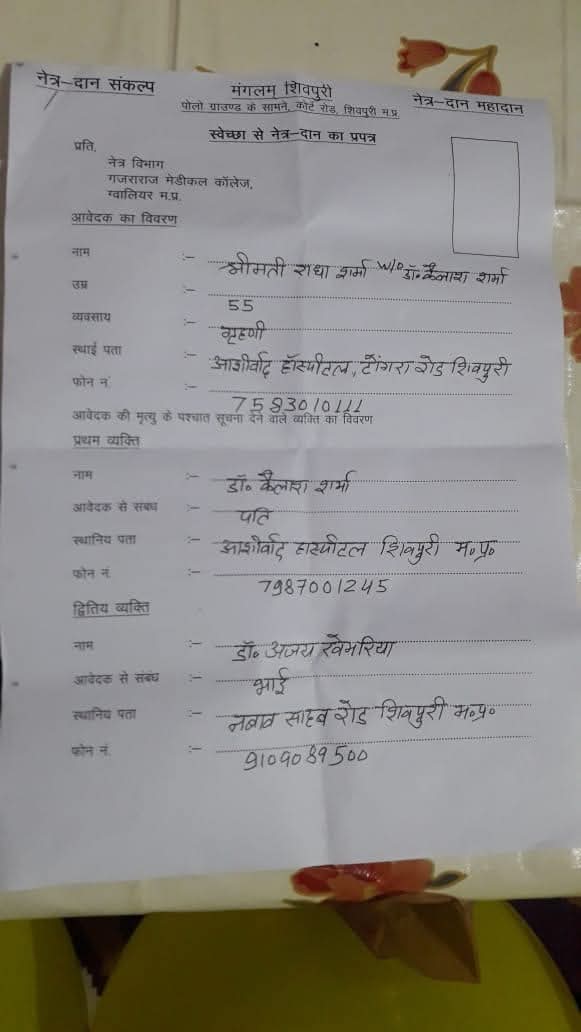 नेत्र–दान संकल्प मंगलम् शिवपुरी नेत्र–दान महादान
पोलो ग्राउण्ड के सामने, कोर्ट रोड, शिवपुरी म.प्र.
स्वेच्छा से नेत्र–दान का प्रपत्र
प्रति,
नेत्र विभाग
गजराराज मेडीकल कॉलेज,
ग्वालियर म.प्र.
आवेदक का विवरण
नाम :– श्रीमती राधा शर्मा w/o डॉ. कैलाश शर्मा
उम्र :– 55
व्यवसाय :– गृहणी
स्थाई पता :– आशीर्वाद हॉस्पीटल, टोंगरा रोड शिवपुरी
फोन नं. :– 7583010111
आवेदक की मृत्यु के पश्चात सूचना देने वाले व्यक्ति का विवरण
प्रथम व्यक्ति
नाम :– डॉ. कैलाश शर्मा
आवेदक से संबध :– पति
स्थानिय पता :– आशीर्वाद हास्पीटल शिवपुरी म.प्र.
फोन नं. :– 7987001245
द्वितिय व्यक्ति
नाम :– डॉ. अजय खेमरिया
आवेदक से संबंध :– भाई
स्थानिय पता :– नबाव साहब रोड शिवपुरी म.प्र.
फोन नं. :– 9109089500